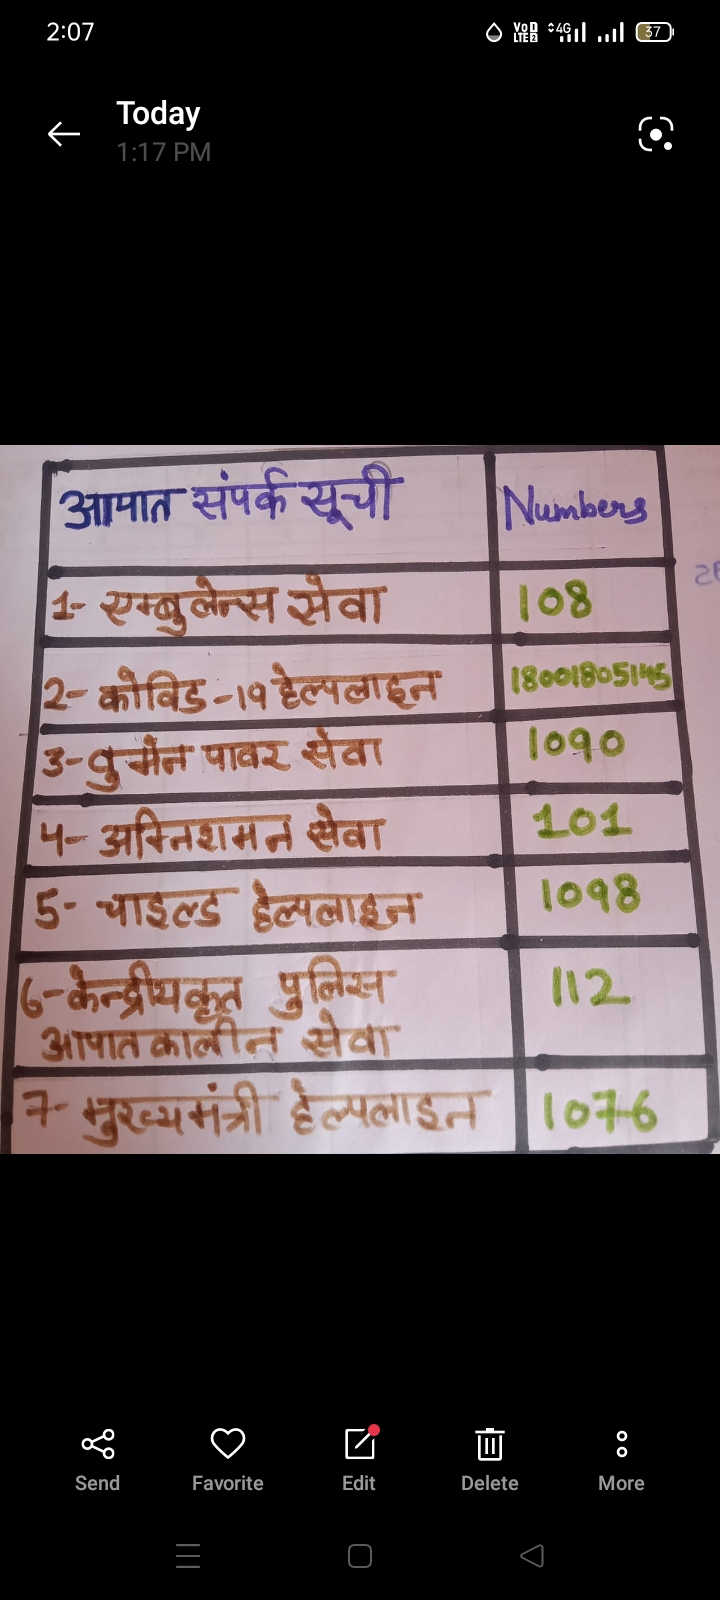 2:07
Vo) LTE2 4G 37
Today
1:17 PM
आपात संपर्क सूची Numbers
1- एम्बुलेन्स सेवा 108
2- कोविड -19 हेल्पलाइन 18001805145
3- वुमेन पावर सेवा 1090
4- अग्निशमन सेवा 101
5- चाइल्ड हेल्पलाइन 1098
6- केन्द्रीयकृत पुलिस 112
आपातकालीन सेवा
7- मुख्यमंत्री हेल्पलाइन 1076
Send Favorite Edit Delete More